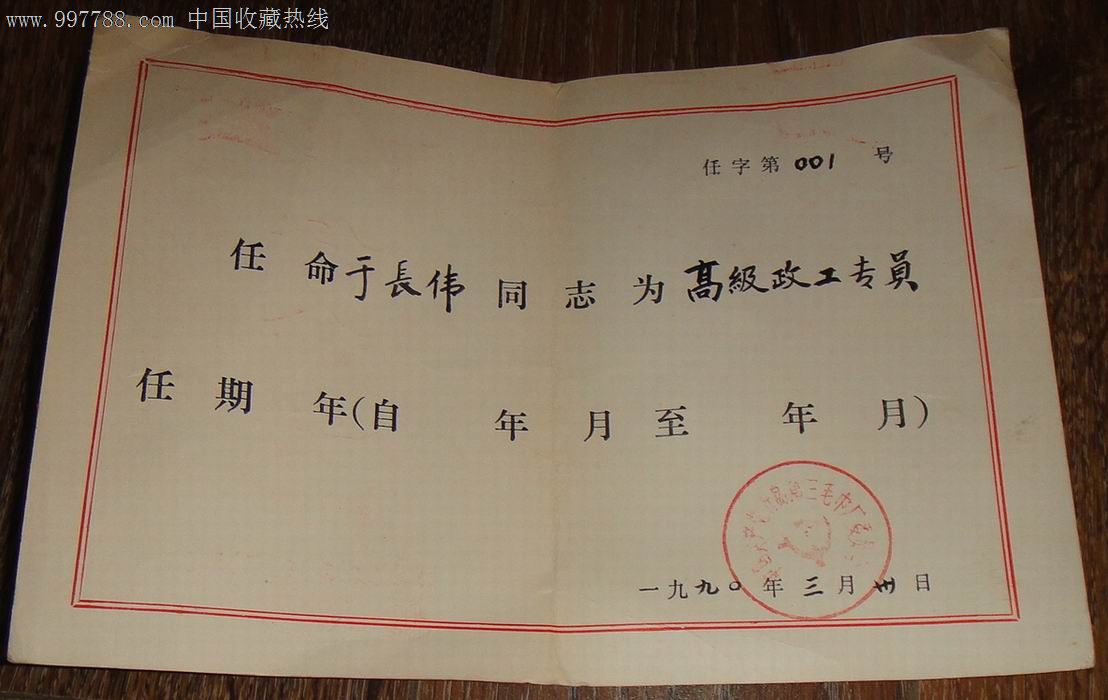 www.997788.com 中国收藏热线
任字第001号
任命于長伟同志为高級政工专員
任期 年(自 年 月至 年 月)
第三毛巾厂
一九九〇年三月卅日